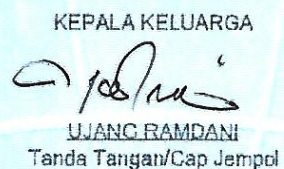 KEPALA KELUARGA
UJANG RAMDANI
Tanda Tangan/Cap Jempol